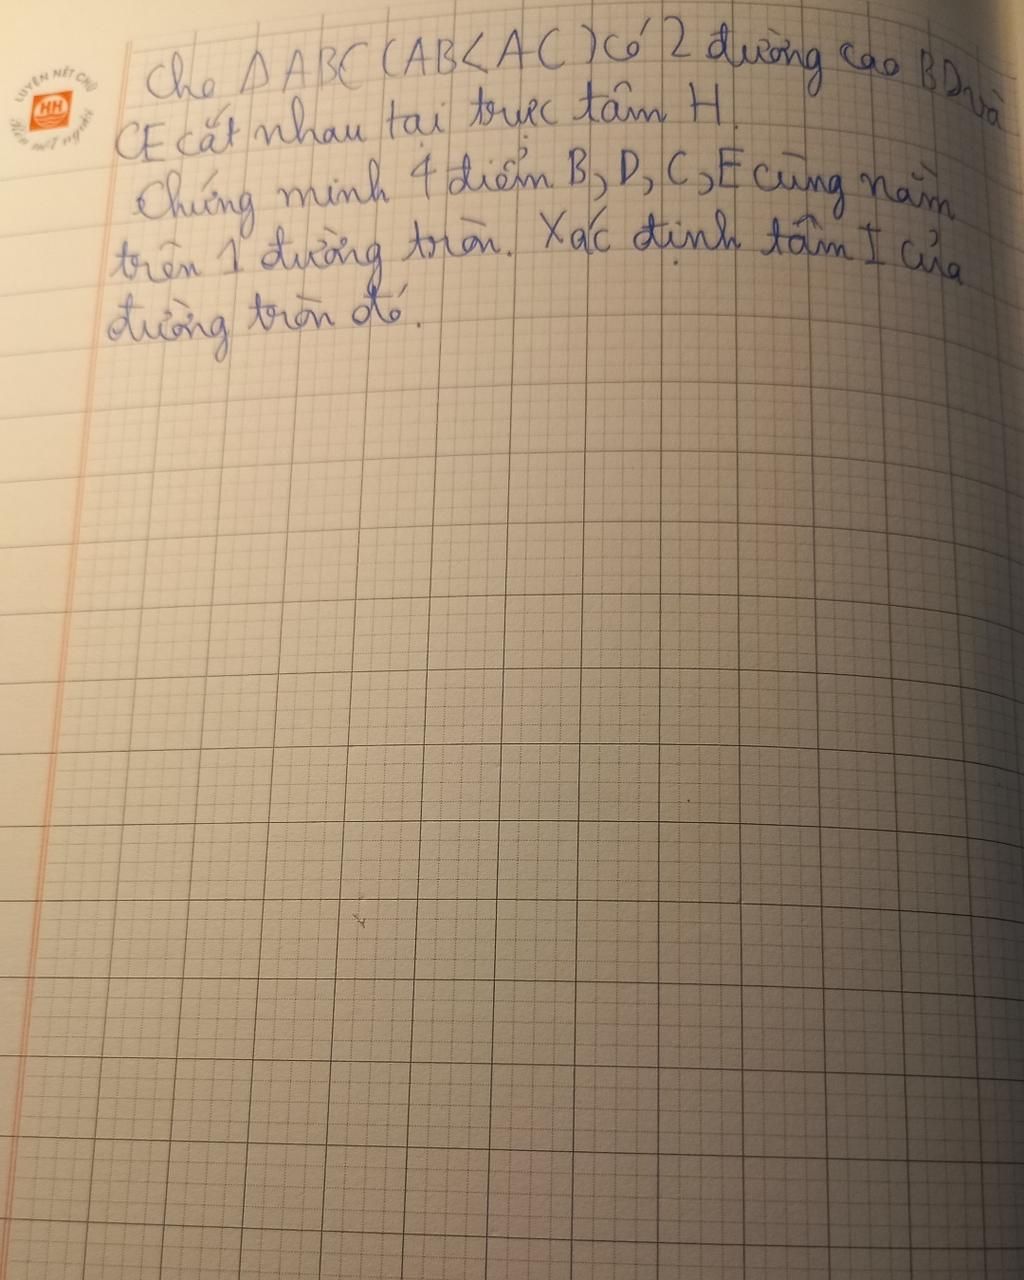 LUYỆN NÉT CHỮ
HH
Rèn nết người
Cho Δ ABC (AB < AC) có 2 đường cao BD và
CE cắt nhau tại trực tâm H.
Chứng minh 4 điểm B, D, C, E cùng nằm
trên 1 đường tròn. Xác định tâm I của
đường tròn đó.